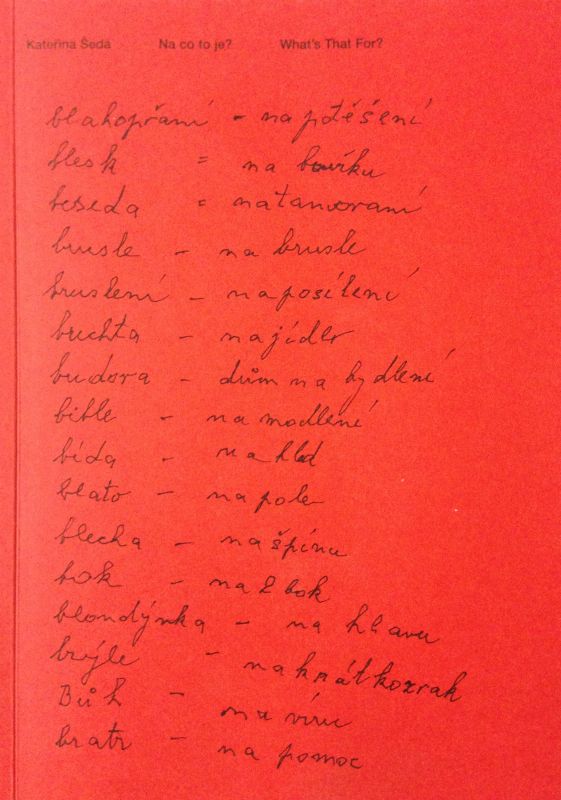 Kateřina Šedá Na co to je? What's That For?
blahopřání - na potěšení
blesk = na bouřku
beseda = na tancovaní
brusle - na brusle
bruslení - na posílení
buchta - na jídlo
budova - dům na bydlení
bible - na modlení
bída - na hlad
blato - na pole
blecha - na špínu
bok - na 2 bok
blondýnka - na hlavu
brýle - na krátkozrak
Bůh - na víru
bratr - na pomoc